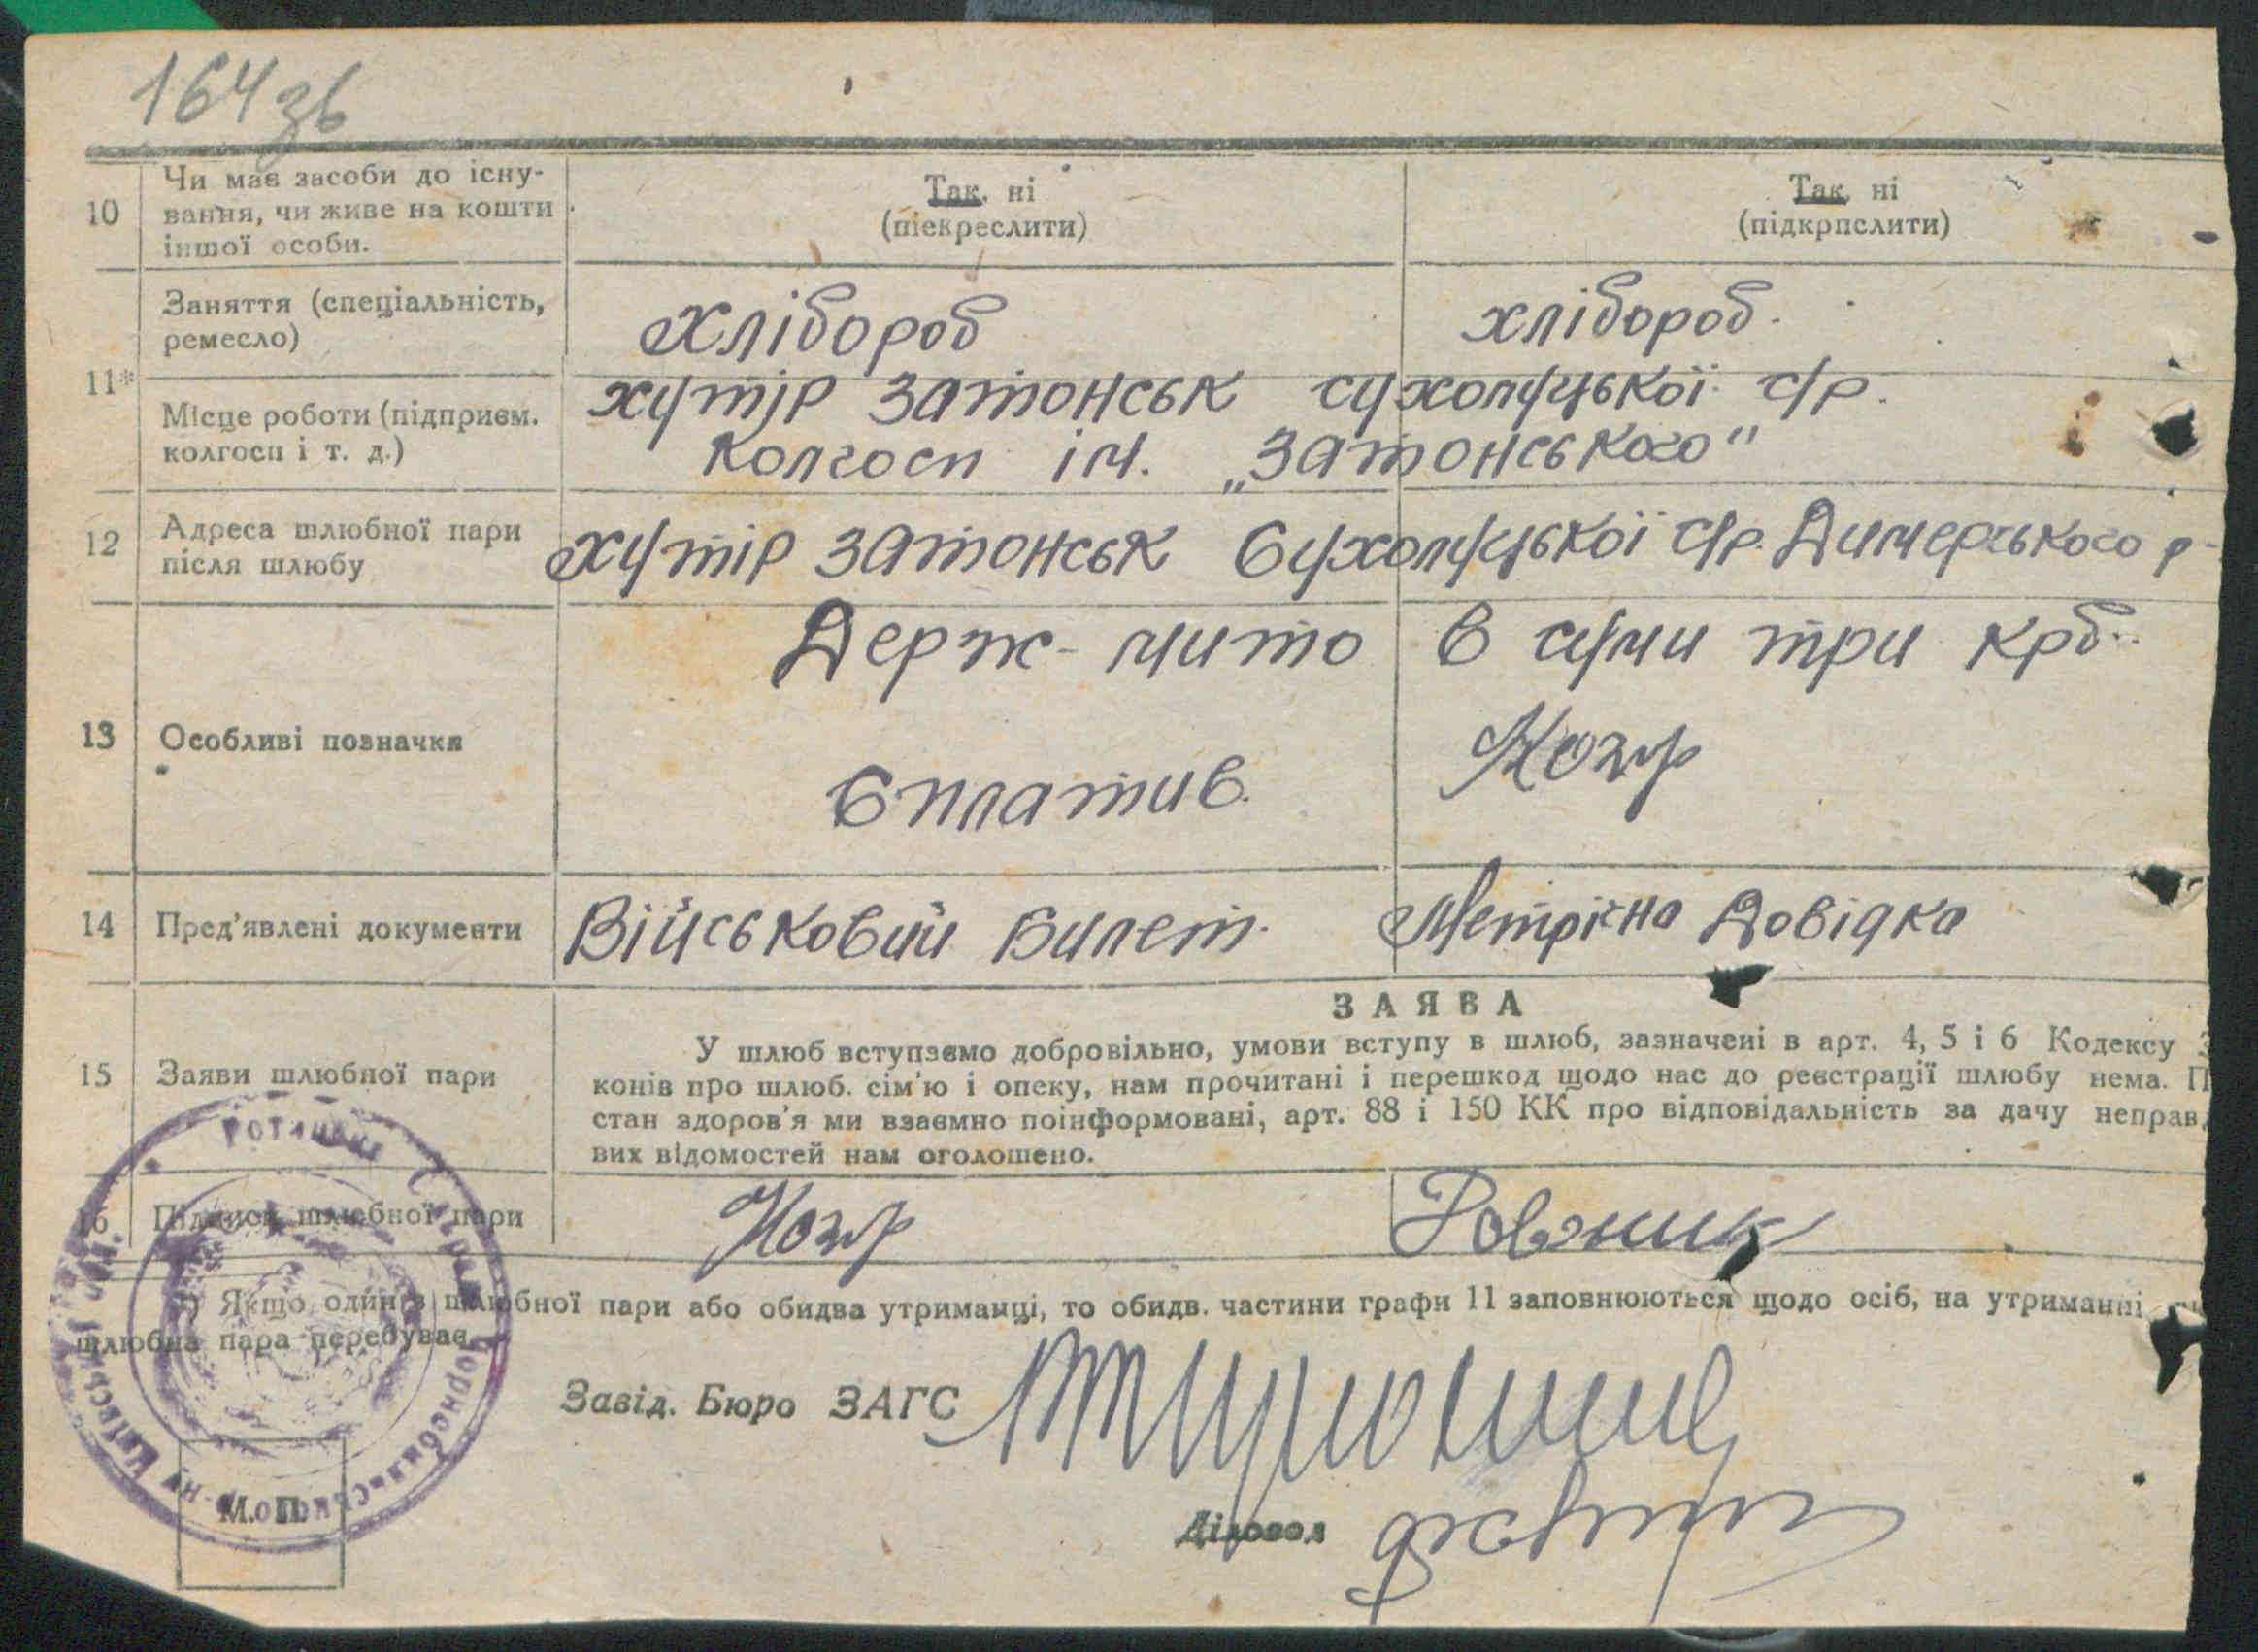 164 зв
10 Чи має засоби до існу-
вання, чи живе на кошти
іншої особи.
Так, ні
(піекреслити)
Так, ні
(підкрпслити)
11*
Заняття (спеціальність,
ремесло)
хлібороб
хлібороб.
Місце роботи (підприєм.
колгосп і т. д.)
хутір Затонськ сухолуцької с/р.
колгосп ім. „Затонського"
12 Адреса шлюбної пари
після шлюбу
хутір Затонськ Сухолуцької с/р. Димерського р-
13 Особливі позначки
Держ-мито в суми три крб.
Сплатив.
14 Пред'явлені документи
Військовий Билет.
Метрічна Довідка
15 Заяви шлюбної пари
ЗАЯВА
У шлюб вступаємо добровільно, умови вступу в шлюб, зазначені в арт. 4, 5 і 6 Кодексу З
конів про шлюб. сім'ю і опеку, нам прочитані і перешкод щодо нас до реєстрації шлюбу нема. П
стан здоров'я ми взаємно поінформовані, арт. 88 і 150 КК про відповідальність за дачу неправ
вих відомостей нам оголошено.
16 Підписи шлюбної пари
Ровник
*) Якщо один з шлюбної пари або обидва утриманці, то обидв. частини графи 11 заповнюються щодо осіб, на утриманні
шлюбна пара перебуває.
Завід. Бюро ЗАГС
Діловод
М. П.
Чорнобильського р-ну Київської